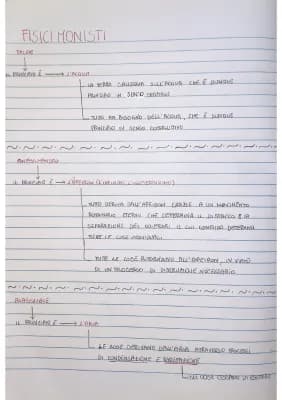 FISICI MONISTI
TALETE
IL PRINCIPIO È → L'ACQUA
LA TERRA GALLEGGIA SULL'ACQUA CHE È DUNQUE
PRINCIPIO IN SENSO
TUTTO HA BISOGNO DELL'ACQUA, CHE È DUNQUE
PRINCIPIO IN SENSO COSTITUTIVO
ANASSIMANDRO
IL PRINCIPIO È → L'ÁPEIRON
TUTTO DERIVA DALL'APEIRON GRAZIE A UN MOVIMENTO
ROTATORIO ETERNO CHE DETERMINA IL DISTACCO E LA
SEPARAZIONE DEI CONTRARI, IL CUI CONFLITTO DETERMINA
TUTTE LE COSE
TUTTE LE COSE RITORNANO ALL'APEIRON, IN VIRTÙ
DI UN PROCESSO DI DISTRUZIONE NECESSARIO
ANASSIMENE
IL PRINCIPIO È → L'ARIA
LE COSE DERIVANO DALL'ARIA ATTRAVERSO PROCESSI
DI CONDENSAZIONE E RAREFAZIONE